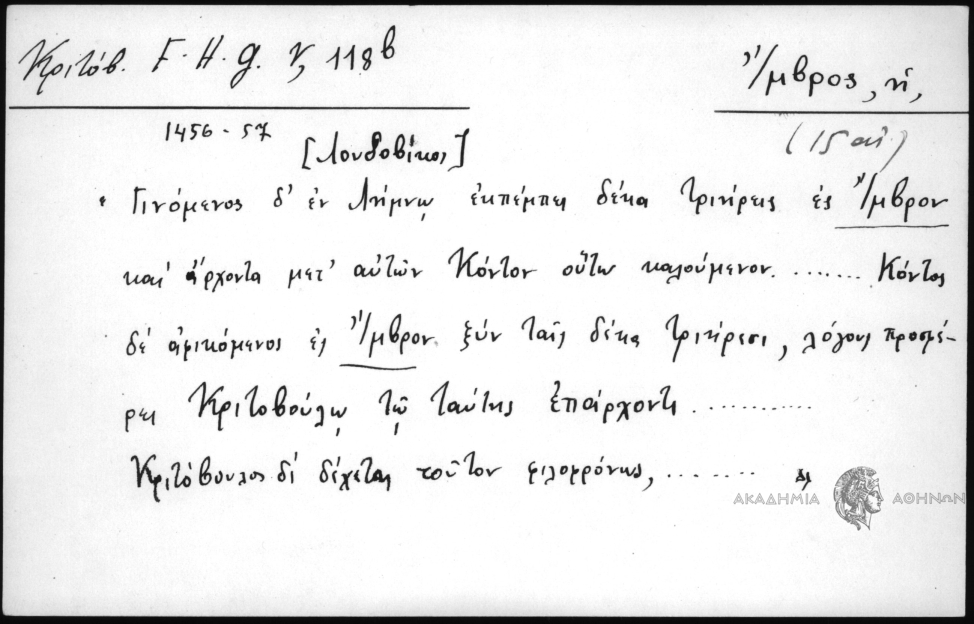 Κριτόβ. F. H. G. V, 118b
Ἴμβρος, ἡ,
1456 - 57
[Λουδοβίκος]
(15 αἰ)
Γινόμενος δ' ἐν Λήμνῳ ἐκπέμπει δέκα τριήρεις ἐς Ἴμβρον
καὶ ἄρχοντα μετ' αὐτῶν Κόντον οὕτω καλούμενον. ....... Κόντος
δὲ ἀφικόμενος ἐς Ἴμβρον ξὺν ταῖς δέκα τριήρεσι, λόγους προσφέ-
ρει Κριτοβούλῳ τῷ ταύτης ἐπάρχοντι ............
Κριτόβουλος δὲ δέχεται τοῦτον φιλοφρόνως, ........
ΑΚΑΔΗΜΙΑ ΑΘΗΝΩΝ